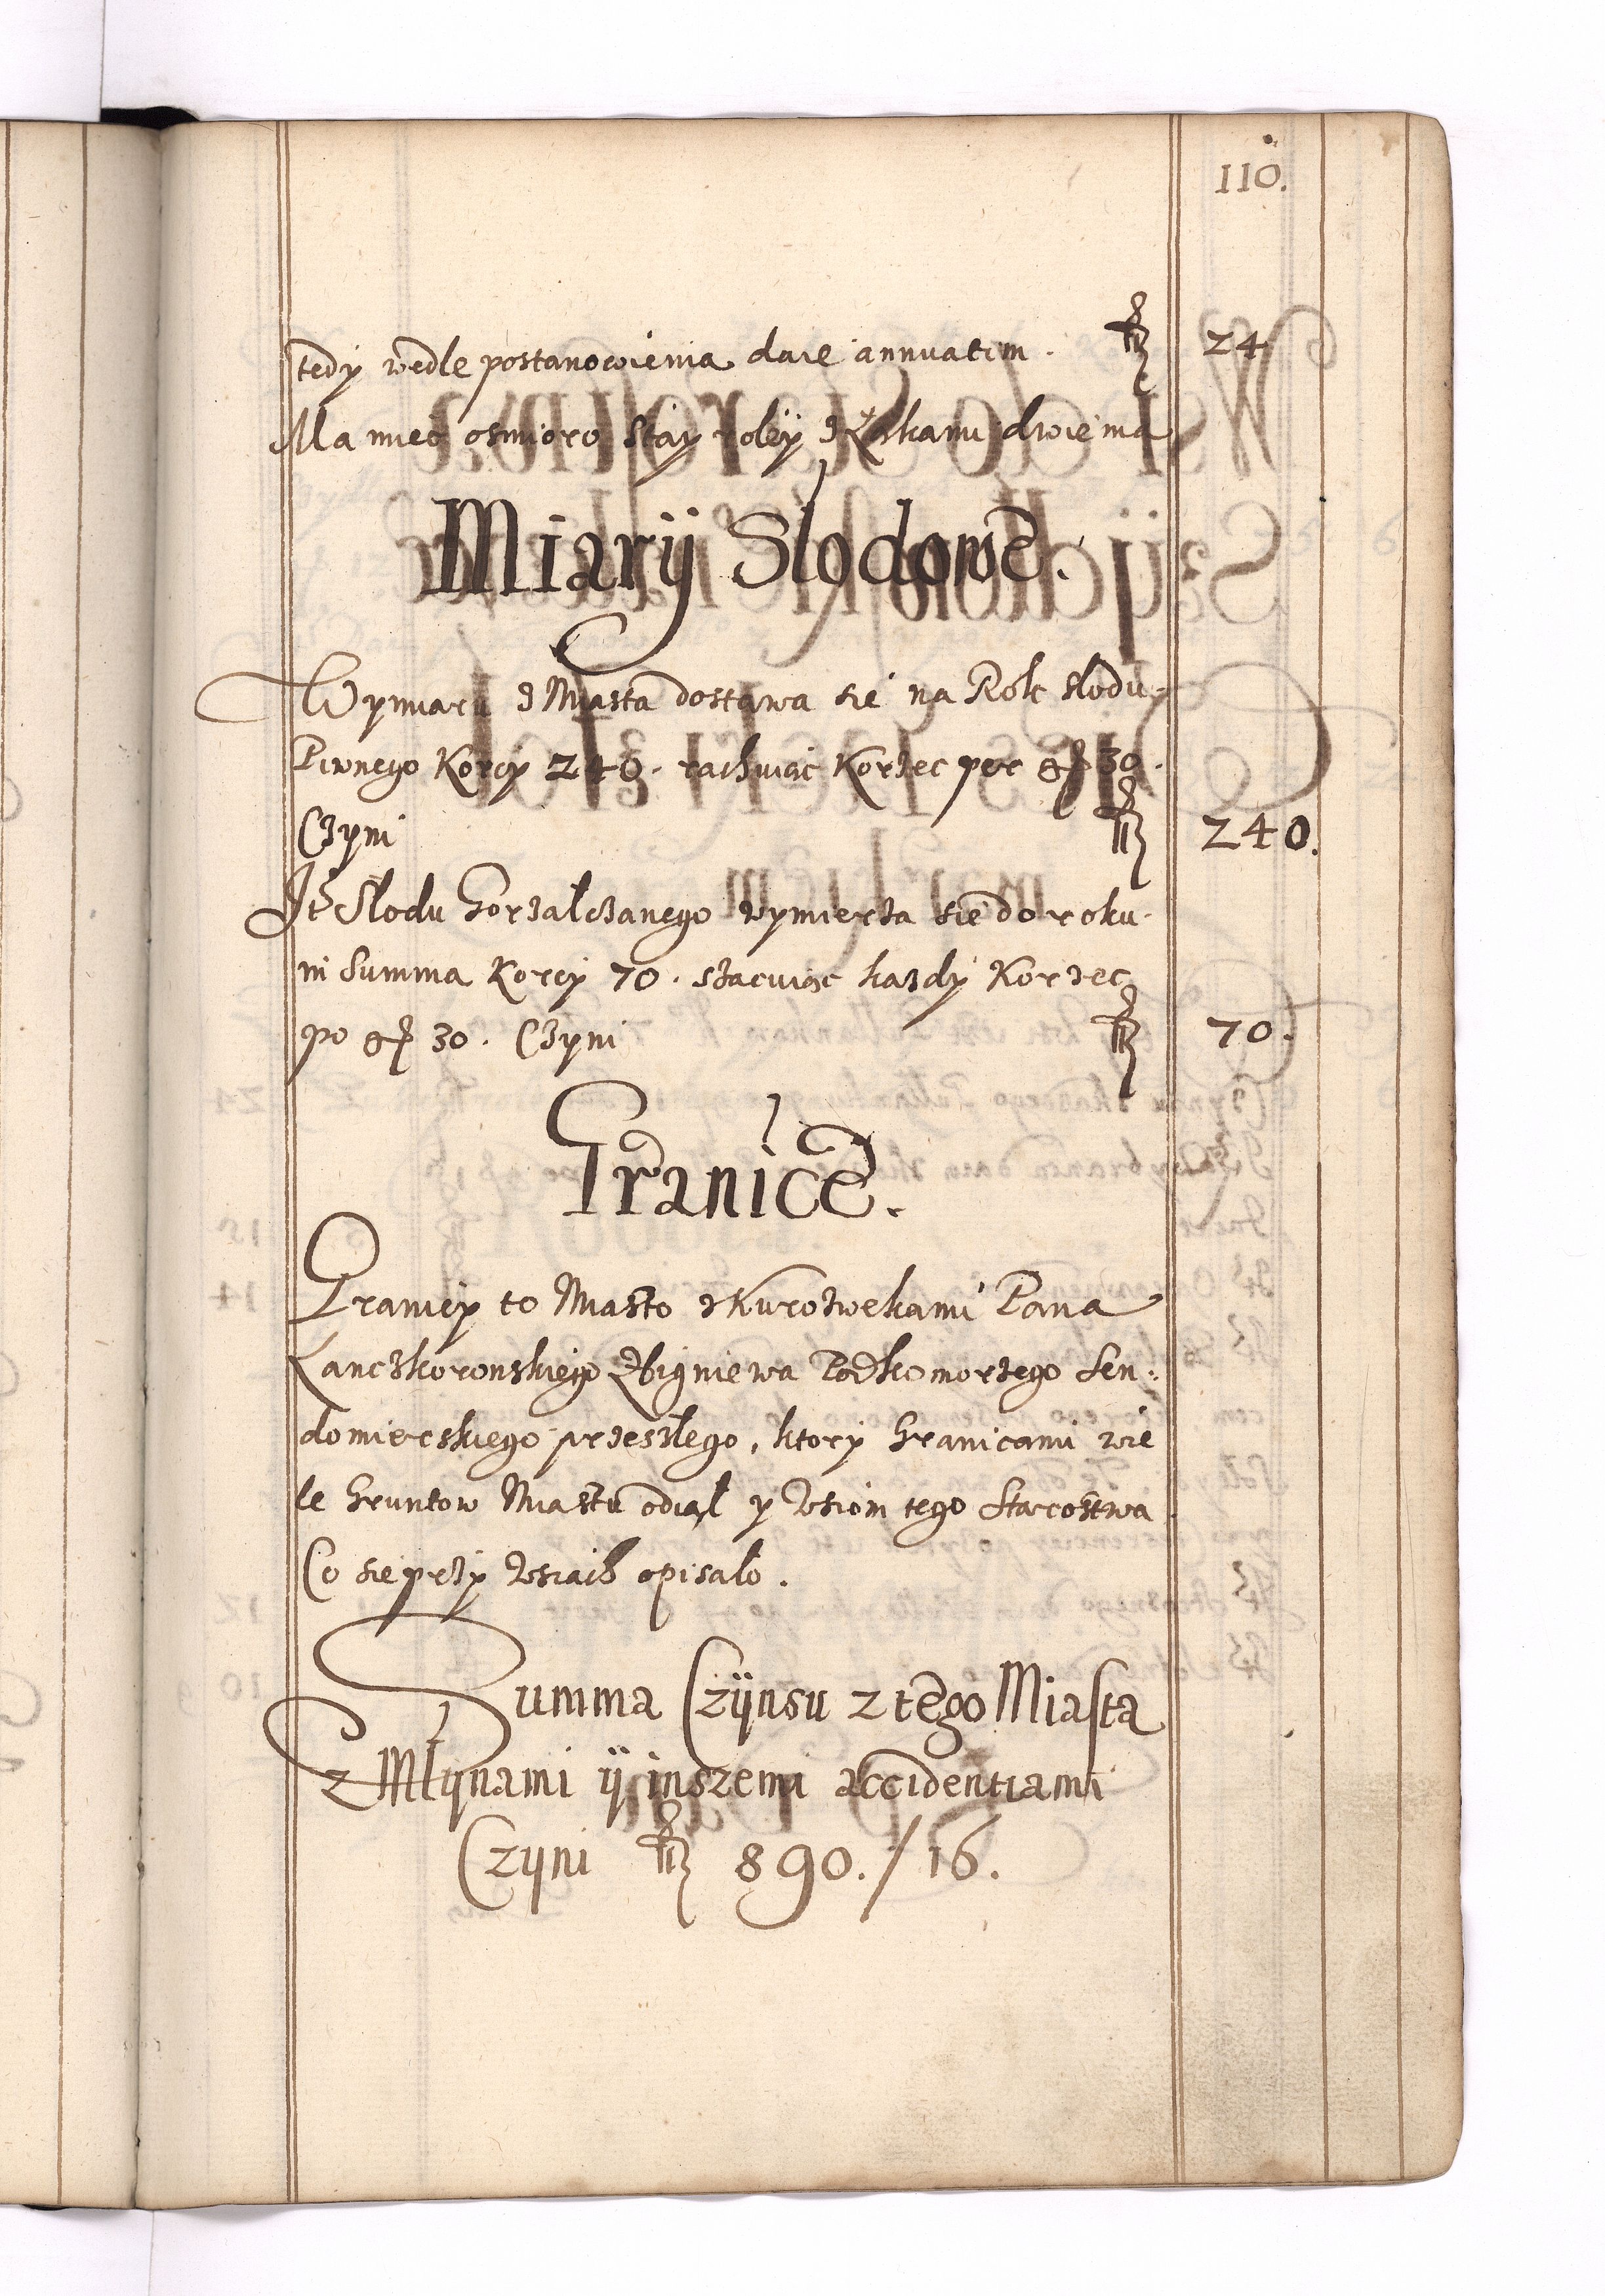 110.
tedy wedle postanowienia daie annuatim . 24
Ma mieć osmioro stay roley z Łąkami dwiema
Miarÿ Słodowe.
Wymiaru z Miasta dostawa sie na Rok slodu
Piwnego Korcy 240 . rachuiąc Korzec per gr 30 .
Czyni 240.
It Slodu Gorzałczanego wymierza sie do roku
in Summa Korcy 70 . szacuiąc kazdy Korzec
po gr 30 . Czyni 70.
Granice.
Graniczy to Miasto z Kurozwekami Pana
Lanczkoronskiego Zbigniewa Podkomorzego Sen:
domierskiego przeszłego, ktory Granicami wie
le Gruntow Miastu odiął y wsiom tego Starostwa
Co sie przy wsiach opisało .
Summa Czÿnsu z tego Miasta
z Młÿnami ÿ inszemi accidentiami
Czyni 890. / 16.